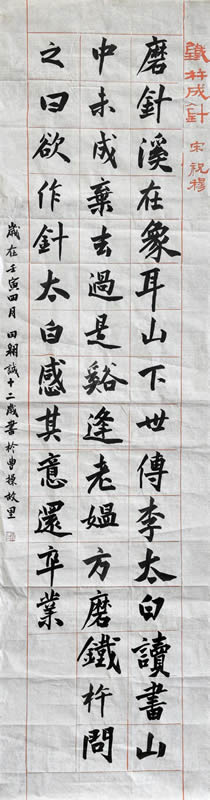 鐵杵成針 宋 祝穆
磨針溪在象耳山下世傳李太白讀書山
中未成棄去過是谿逢老媼方磨鐵杵問
之曰欲作針太白感其意還卒業
歲在壬寅四月 田翱誠十二歲書於曹操故里